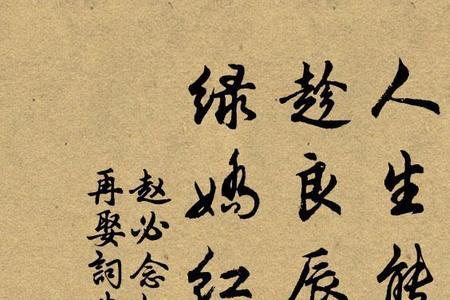 人生能
趁良辰
绿娇红
赵必念
再娶詞